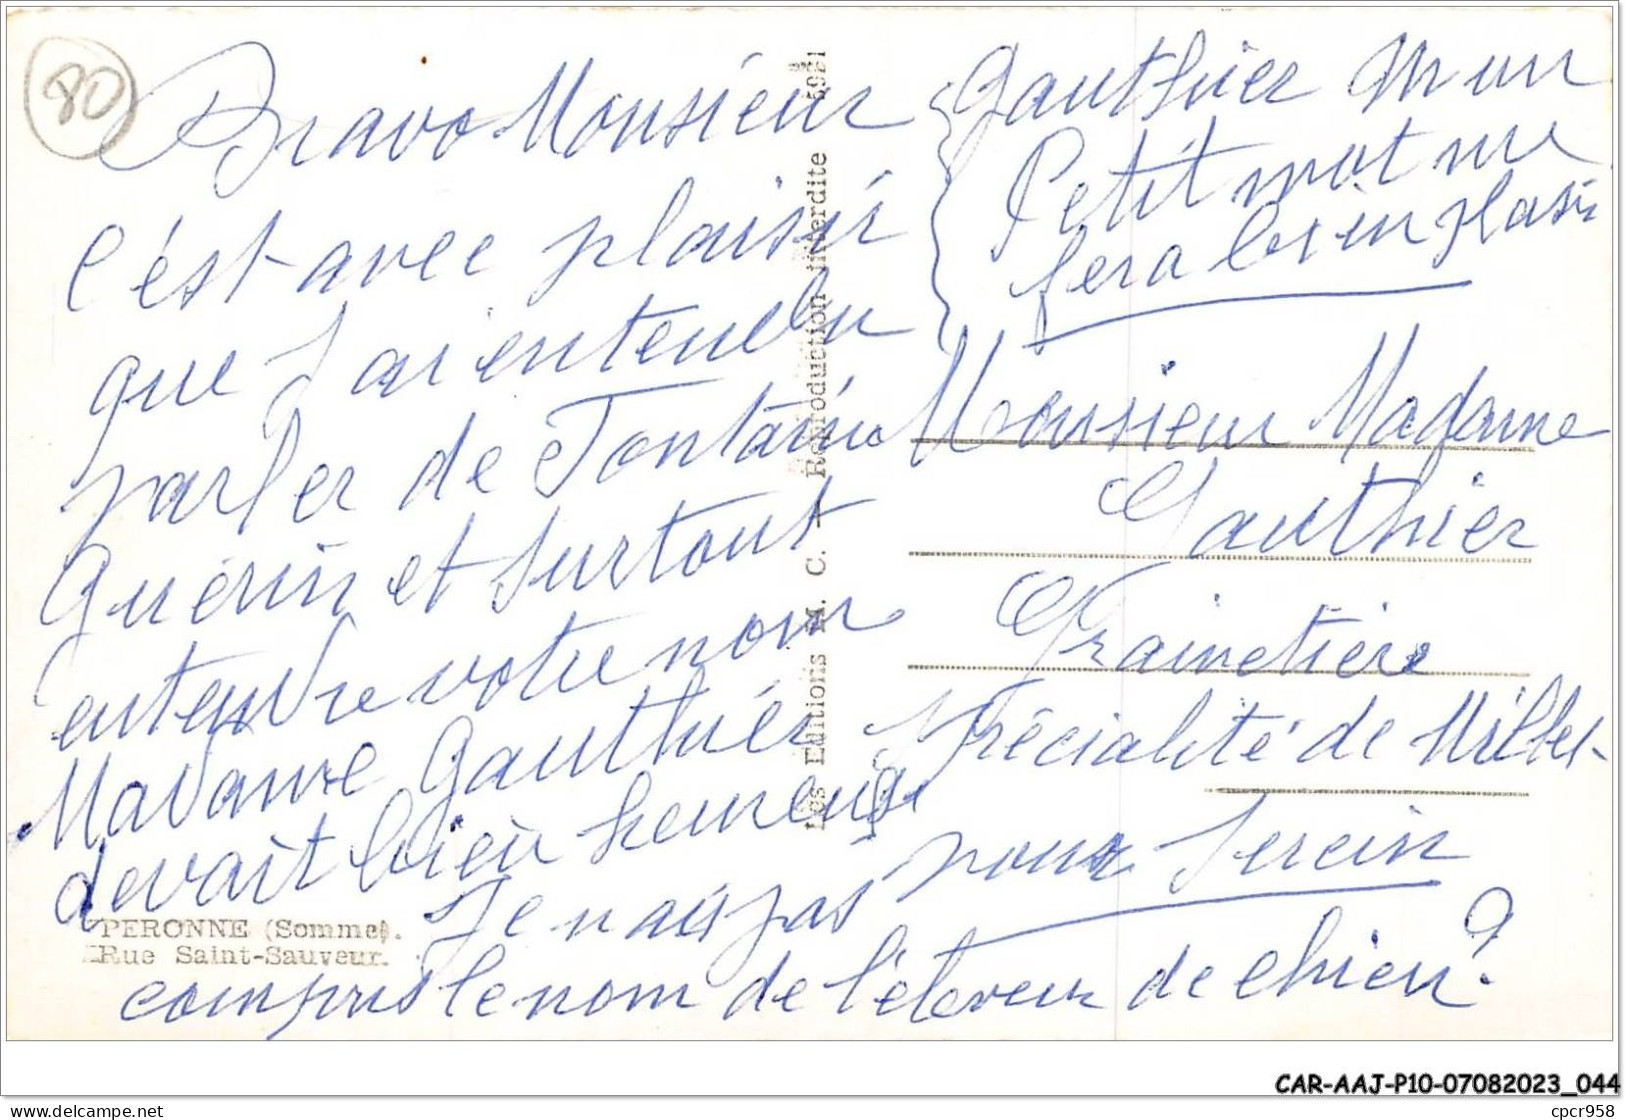 80
Bravo Monsieur
c'est avec plaisir
que J'ai entendu
parler de Fontaine
Guérin et surtout
entendre votre nom
Madame Gauthier
devait bien heureuse
Je n'ais pas
compris le nom de l'éleveur de chien ?
PERONNE (Somme).
Rue Saint-Sauveur.
Les Editions M. C. — Reproduction interdite 5921
Gauthier un
Petit mot me
fera bien plaisir
Monsieur Madame
Gauthier
Grainetière
Spécialité de Millet
pour Serein
CAR-AAJ-P10-07082023_044
https://www.delcampe.net
cpcr958